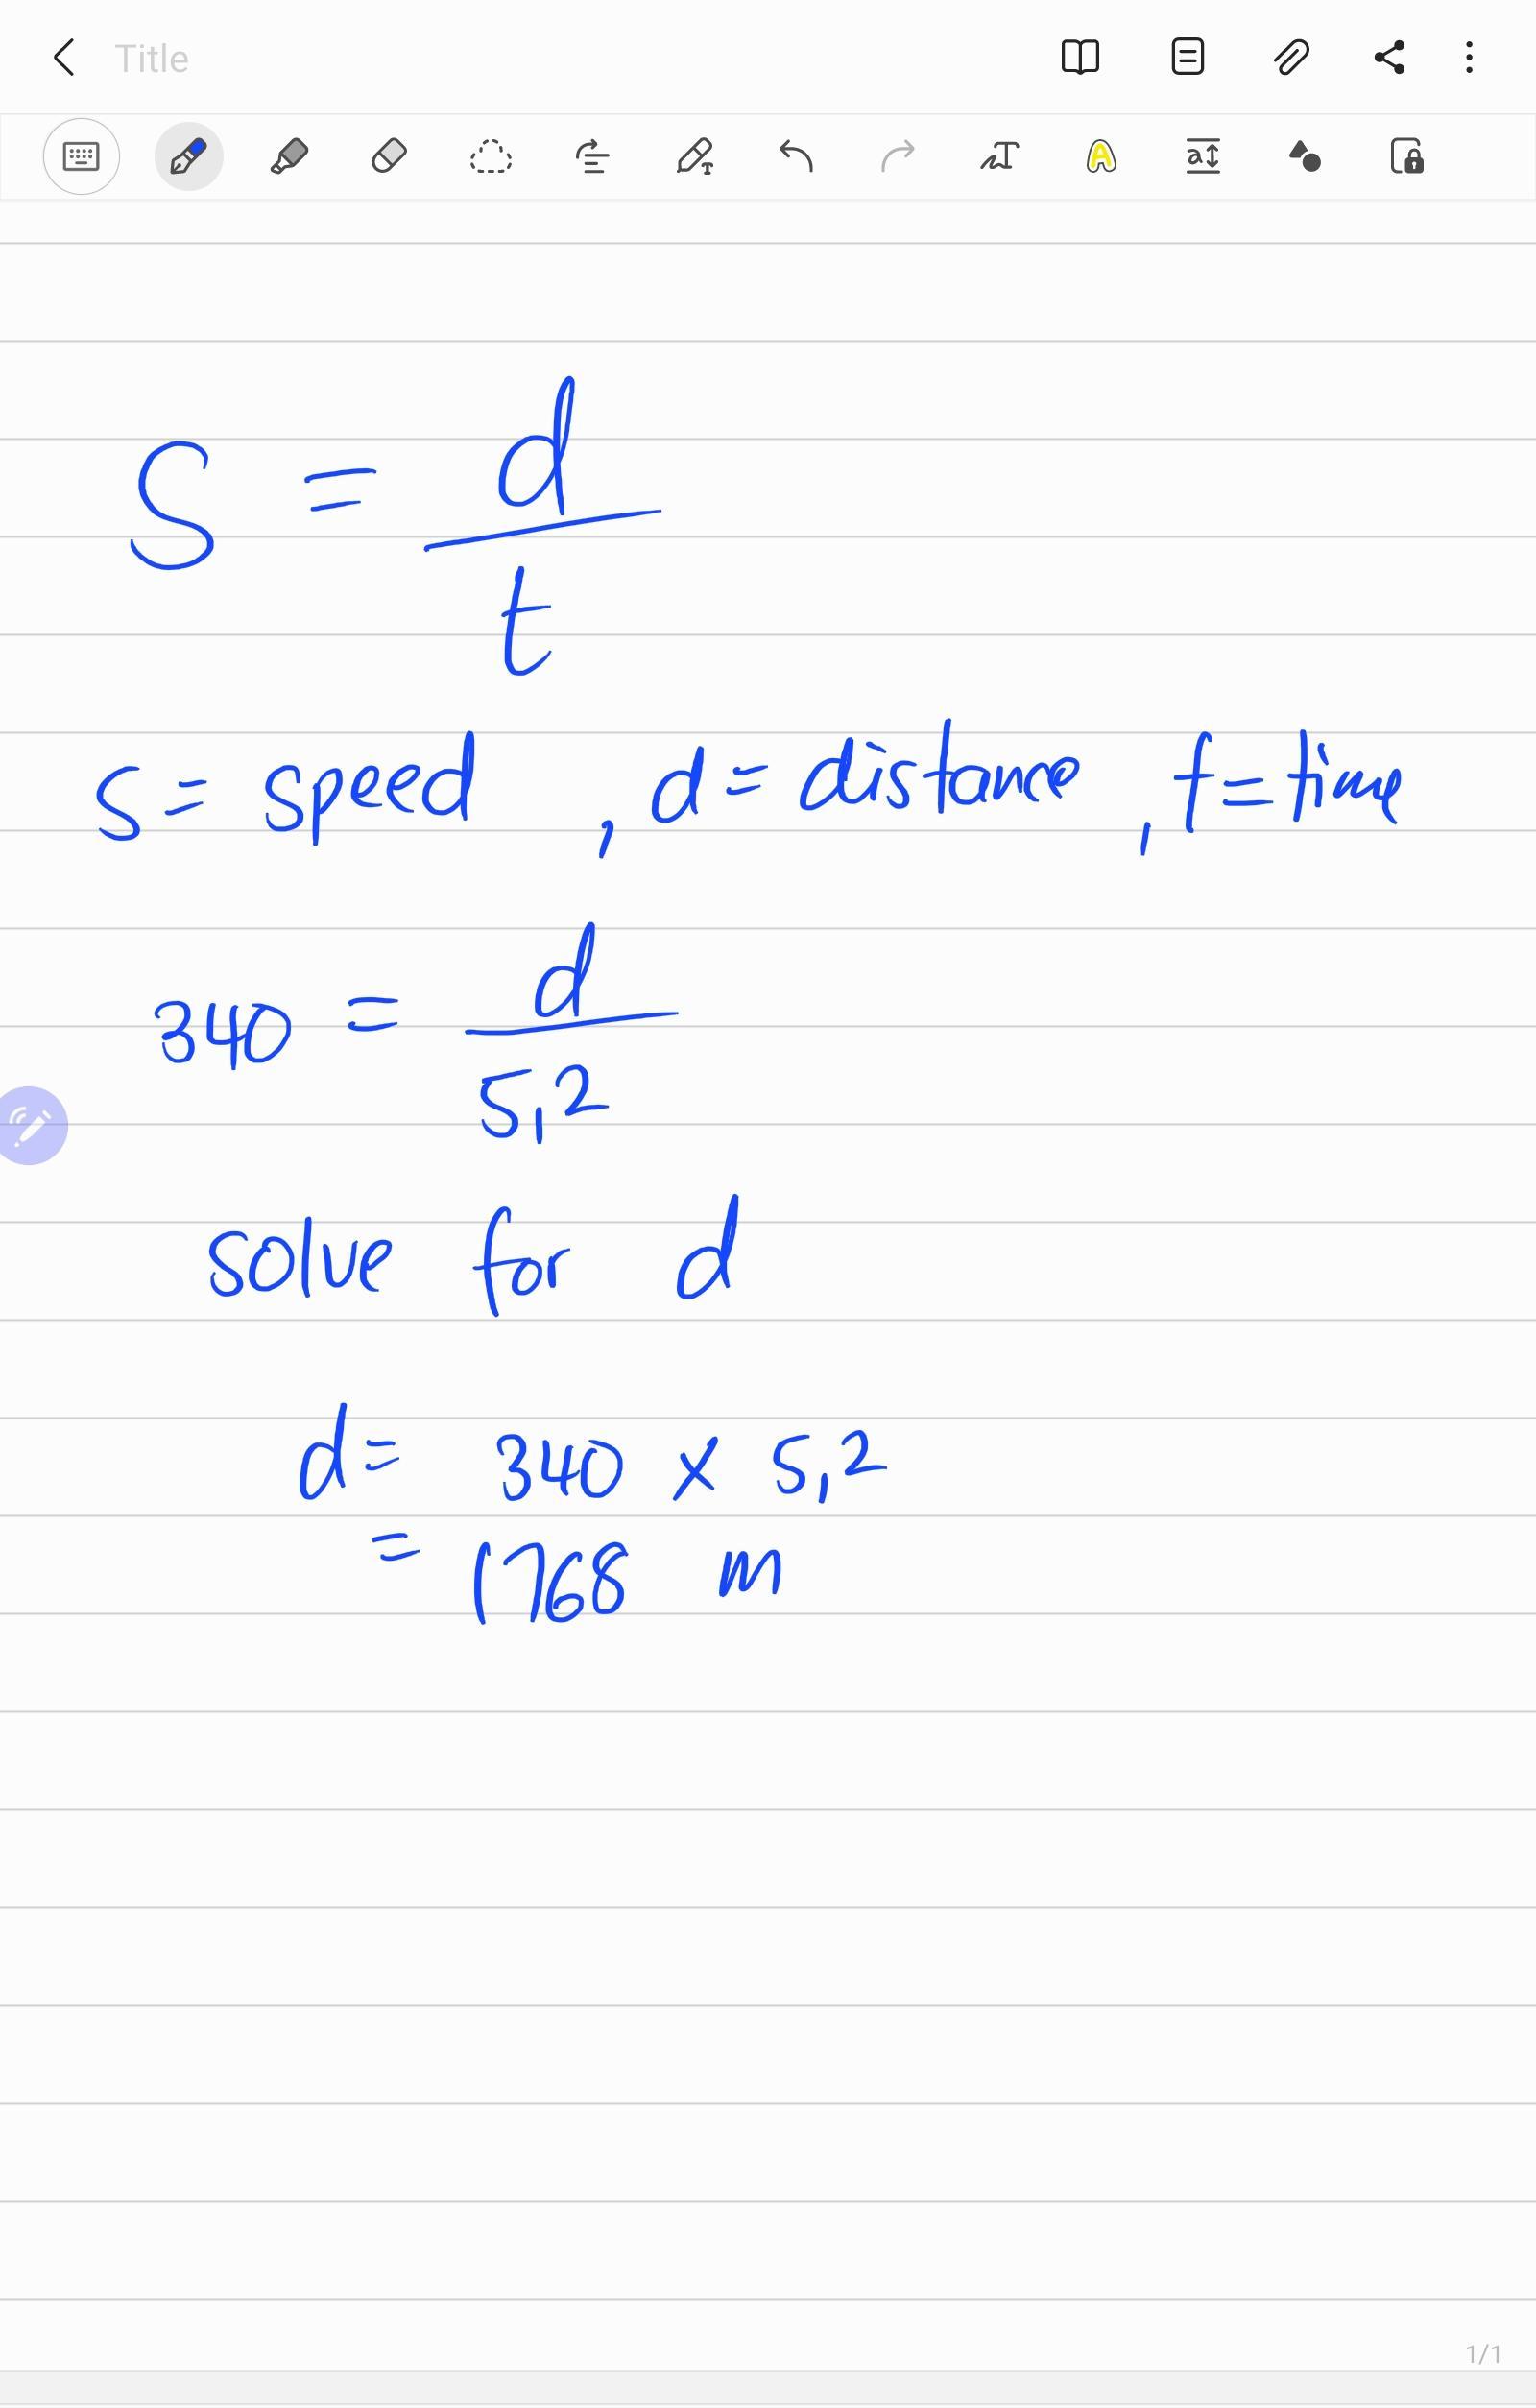 Title
S = d/t
S = speed , d = distance , t = time
340 = d/5,2
solve for d
d = 340 x 5,2
= 1768 m
1/1